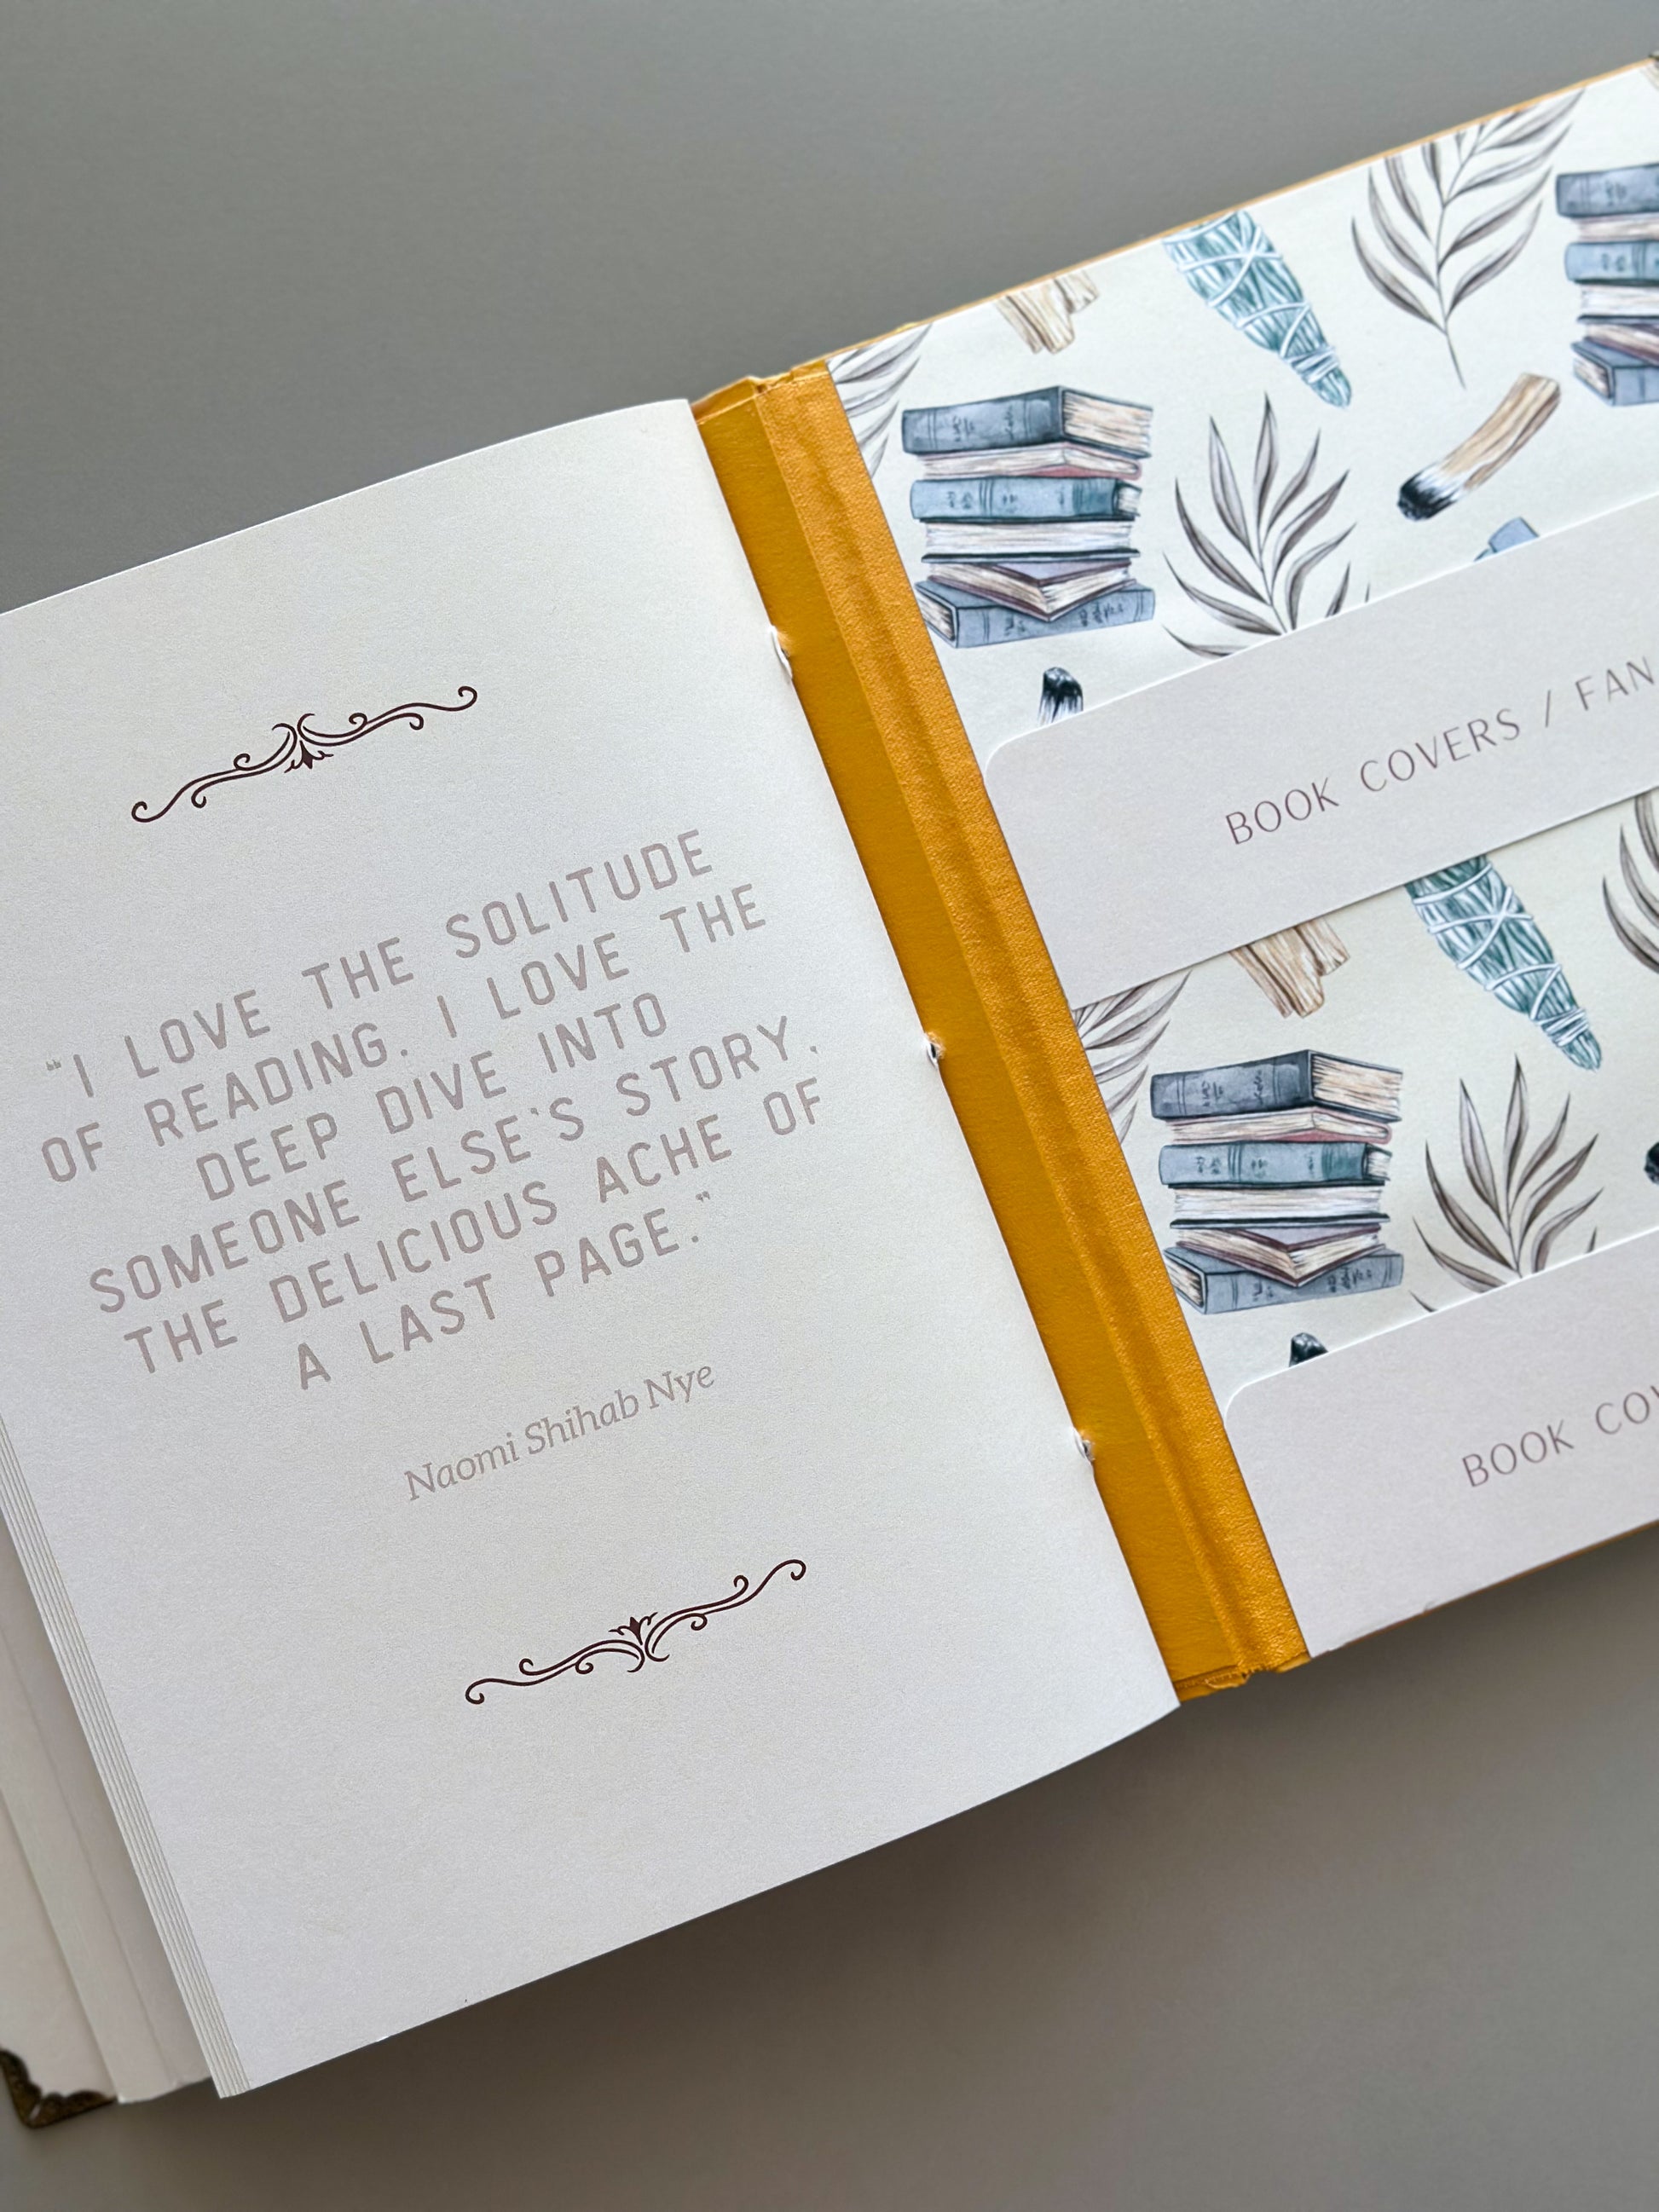 "I LOVE THE SOLITUDE
OF READING. I LOVE THE
DEEP DIVE INTO
SOMEONE ELSE'S STORY,
THE DELICIOUS ACHE OF
A LAST PAGE."
Naomi Shihab Nye
BOOK COVERS / FAN
BOOK COV